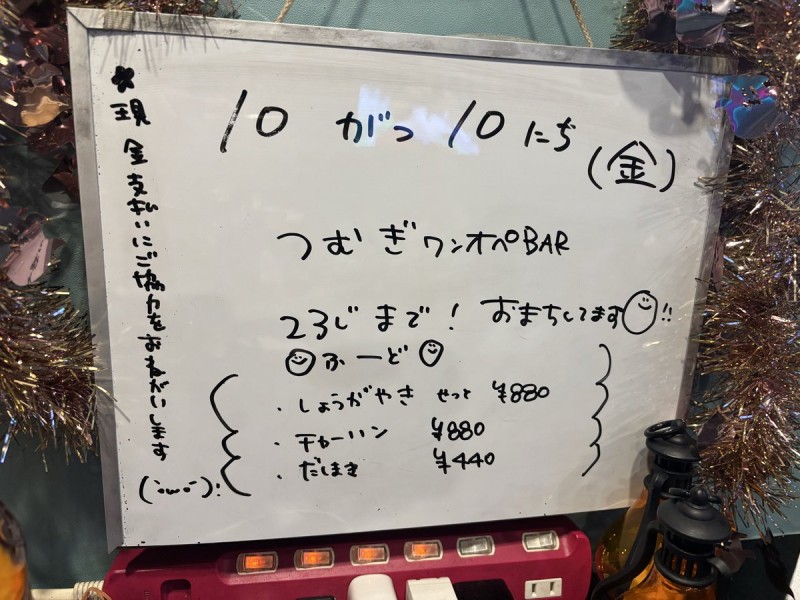 10 がつ 10 にち (金)
つむぎワンオペBAR
23じまで! おまちしてます!!
ふーど
・しょうがやき せっと ¥880
・チャーハン ¥880
・だしまき ¥440
*現金支払いにご協力をおねがいします
(・ω・)!